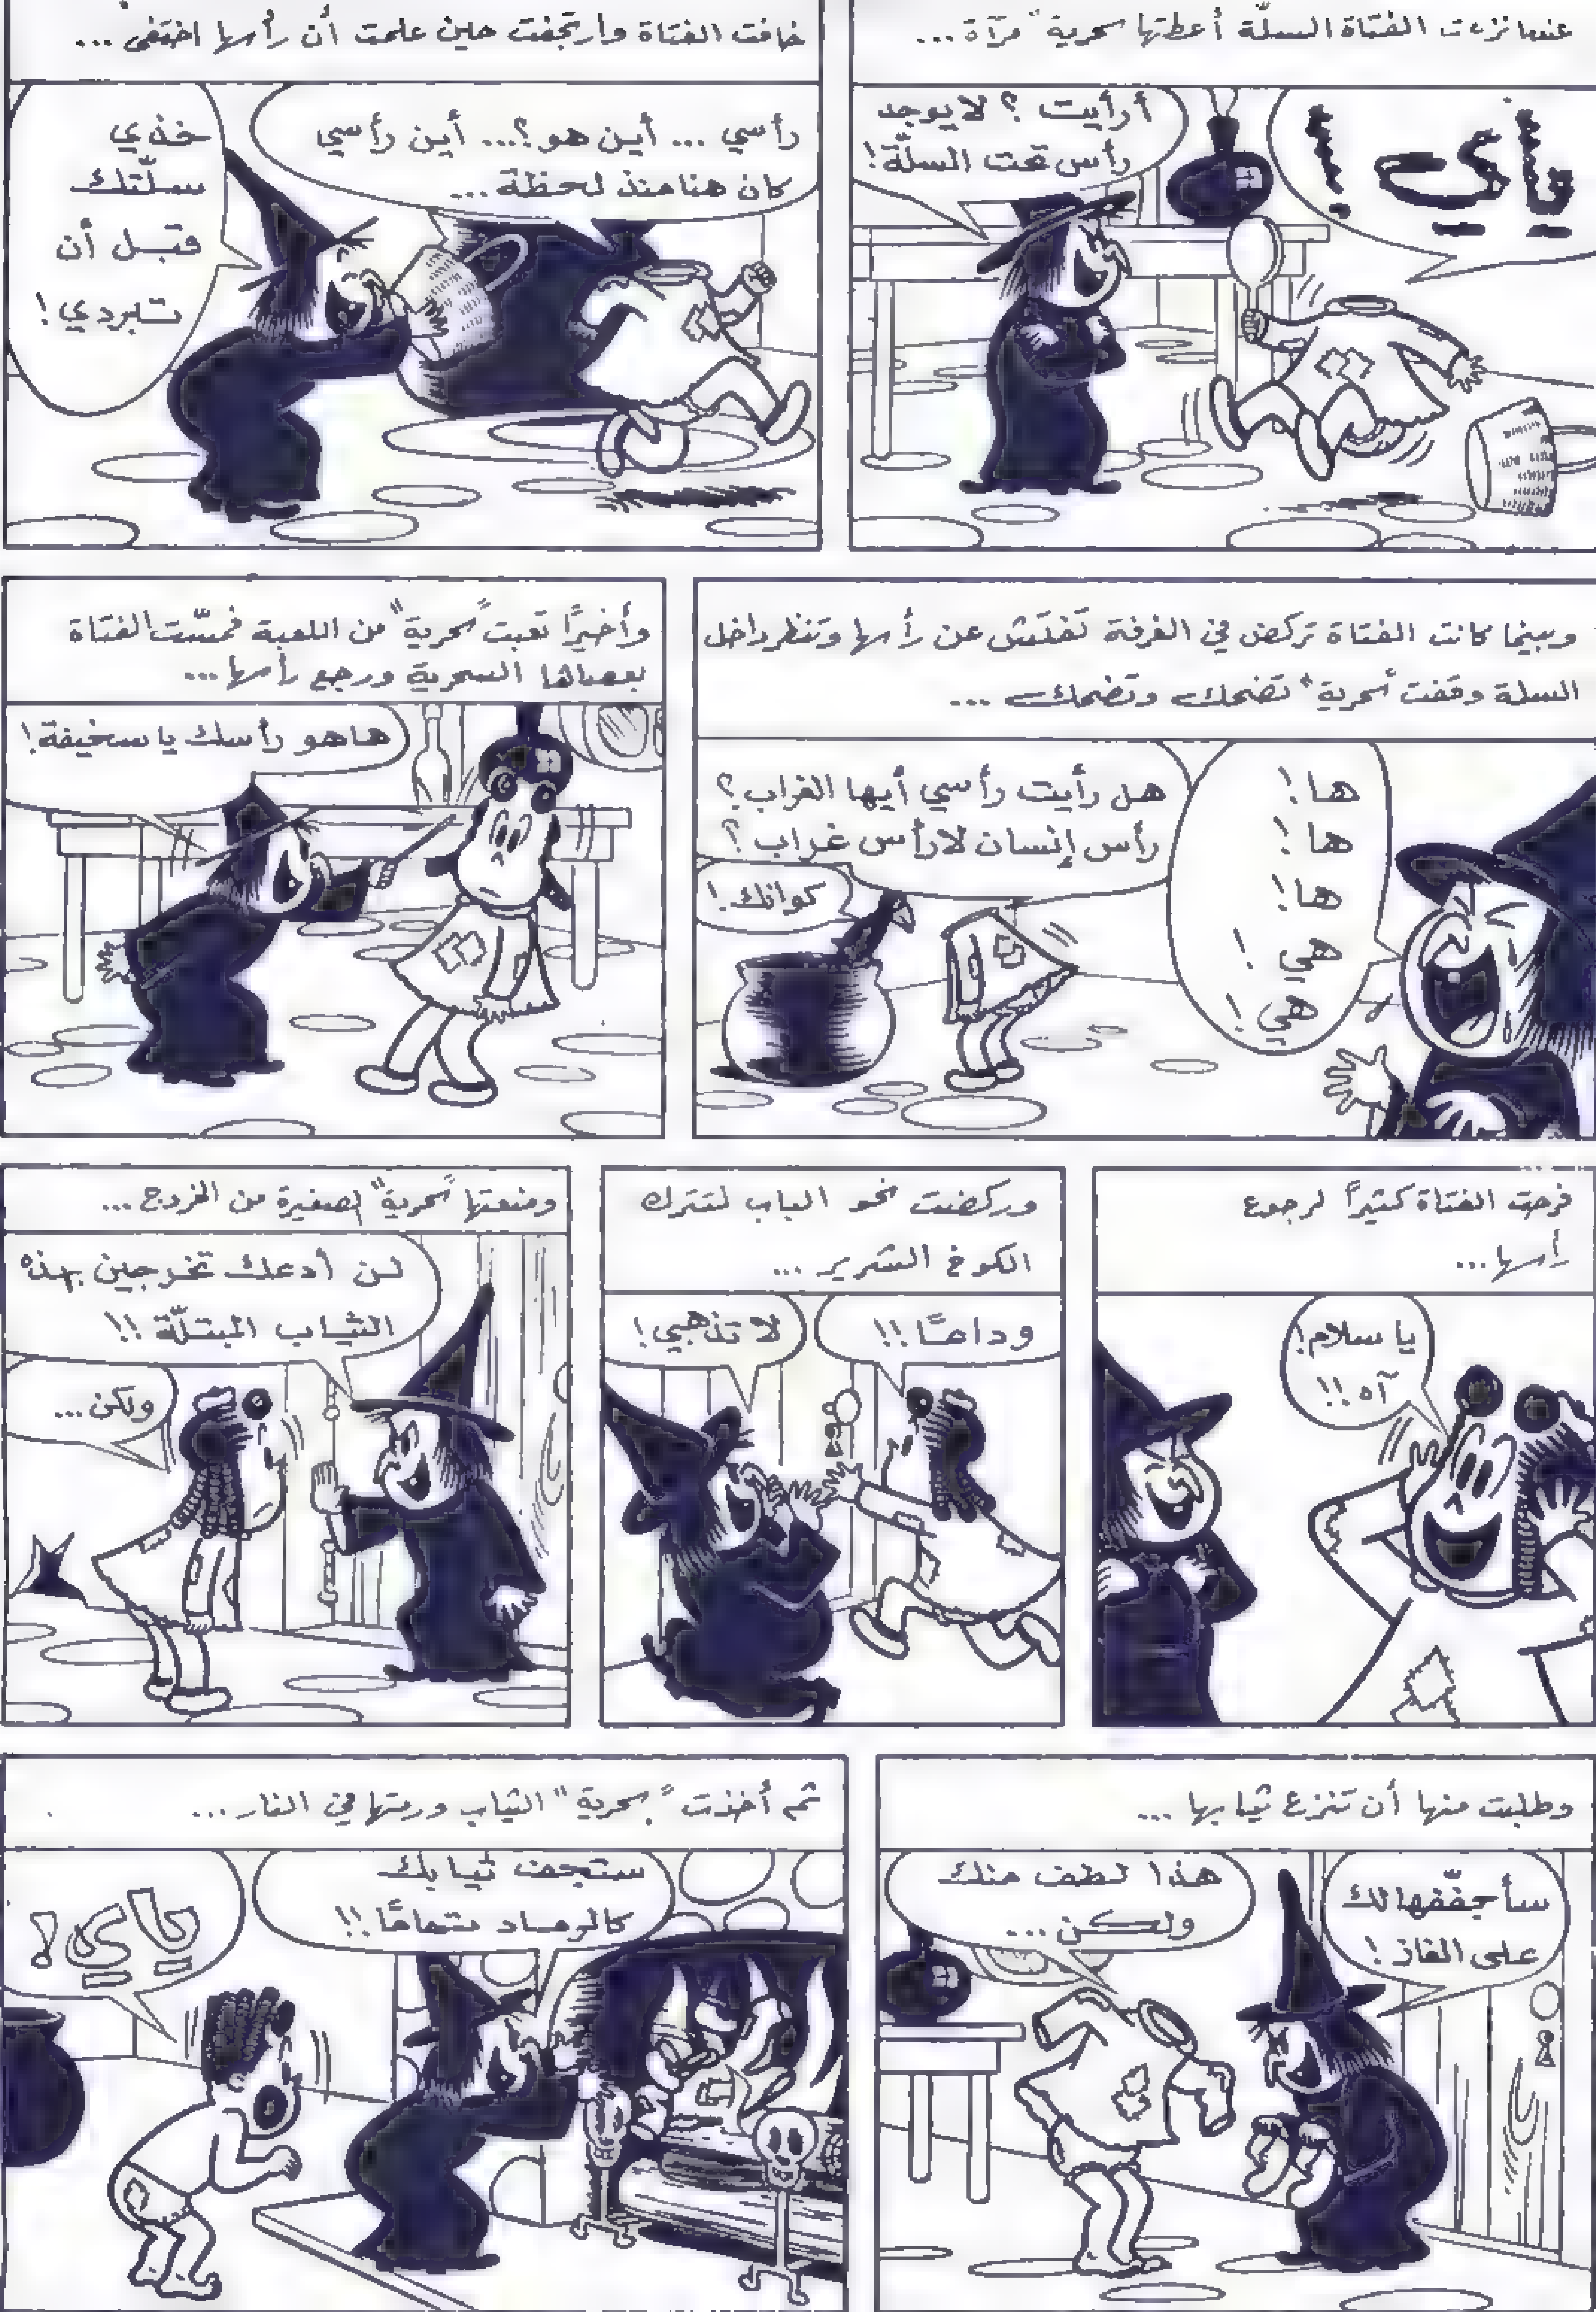 عندما نزعت الفتاة السلّة أعطتها سحرية" مرآة...
يااي!!
أرأيت؟ لا يوجد
رأس تحت السلّة!
خافت الفتاة وارتجفت حين علمت أن رأسها اختفى...
رأسي... أين هو؟... أين رأسي
كان هنا منذ لحظة...
خذي
سلّتك
قبل أن
تبردي!
وبينما كانت الفتاة تركض في الغرفة تفتش عن رأسها وتنظر داخل
السلة وقفت "سحرية" تضحك وتضحك...
ها!
ها!
ها!
هي!
هي!
هل رأيت رأسي أيها الغراب؟
رأس إنسان لا رأس غراب؟
كوانك!
وأخيرًا تعبت "سحرية" من اللعبة فمسّت الفتاة
بعصاها السحرية ورجع رأسها...
ها هو رأسك يا سخيفة!
فرحت الفتاة كثيرًا لرجوع
رأسها...
يا سلام!
آه!!
وركضت نحو الباب لتترك
الكوخ الشرير...
وداعًا!!
لا تذهبي!
ومنعتها "سحرية" الصغيرة من الخروج...
لن أدعك تخرجين بهذه
الثياب المبتلّة!!
ولكن...
وطلبت منها أن تنزع ثيابها...
سأجفّفها لك
على النار!
هذا لطف منك
ولكن...
ثم أخذت "سحرية" الثياب ورمتها في النار...
ستجف ثيابك
كالرماد تمامًا!!
ياي!